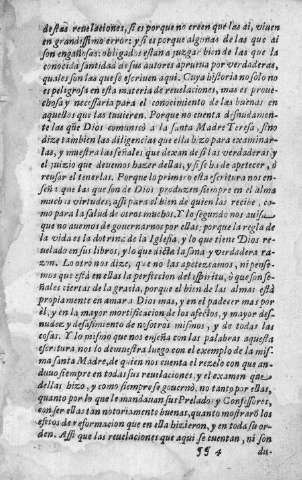 destas reuelaciones, si es porque no creen que las ai, viuen
en grandissimo error: y si es porque algunas de las que ai
son engañosas: obligados estan a juzgar bien de las que la
conocida santidad de sus autores aprueua por verdaderas,
quales son las que se escriuen aqui. Cuya historia no solo no
es peligrosa en esta materia de reuelaciones, mas es proue-
chosa y necessaria para el conocimiento de las buenas en
aquellos que las tuuieren. Porque no cuenta desnudamen-
te las que Dios comunicò a la santa Madre Teresa, sino
dize tambien las diligencias que ella hizo para examinar-
las, y muestra las señales que dexan de si las verdaderas: y
el juizio que deuemos hazer dellas, y si se ha de apetecer, ò
reusar el tenerlas. Porque lo primero esta escritura nos en-
seña que las que son de Dios produzen siempre en el alma
muchas virtudes, assi para el bien de quien las recibe, co-
mo para la salud de otros muchos. Y lo segundo nos auisa
que no auemos de gouernarnos por ellas: porque la regla de
la vida es la dotrina de la Iglesia, y lo que tiene Dios re-
uelado en sus libros, y lo que dicta la sana y verdadera ra-
zon. Lo otro nos dize, que no las apetezcamos, ni pense-
mos que está en ellas la perfeccion del espiritu, ò que son se-
ñales ciertas de la gracia, porque el bien de las almas está
propiamente en amar a Dios mas, y en el padecer mas por
èl, y en la mayor mortificacion de los afectos, y mayor des-
nudez y desasimiento de nosotros mismos, y de todas las
cosas. Y lo mismo que nos enseña con las palabras aquesta
escritura, nos lo demuestra luego con el exemplo de la mis-
ma santa Madre, de quien nos cuenta el rezelo con que an-
duuo siempre en todas sus reuelaciones, y el examen que
dellas hizo, y como siempre se gouernó, no tanto por ellas,
quanto por lo que le mandauan sus Prelados y Confessores,
con ser ellas tan notoriamente buenas, quanto mostraró los
efetos de reformacion que en ella hizieron, y en toda su or-
den. Assi que las reuelaciones que aqui se cuentan, ni son
§§ 4 du-